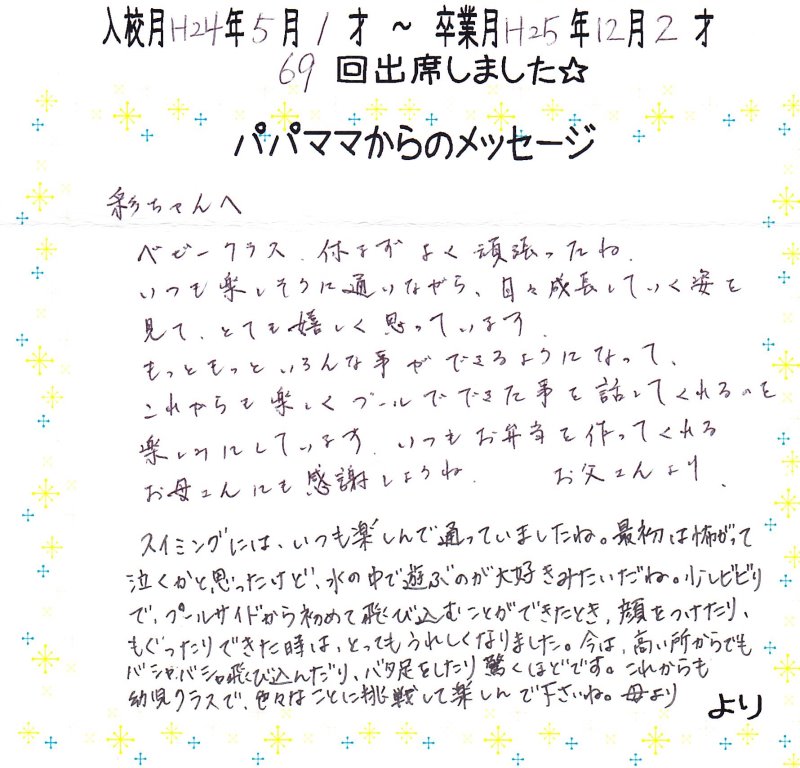 入校月H24年5月1才 ~ 卒業月H25年12月2才
69回出席しました☆
パパママからのメッセージ
彩ちゃんへ
ベビークラス、休まずよく頑張ったね。
いつも楽しそうに通いながら、日々成長していく姿を
見て、とても嬉しく思っています。
もっともっといろんな事ができるようになって、
これからも楽しくプールでできた事を話してくれるのを
楽しみにしています。いつもお弁当を作ってくれる
お母さんにも感謝しようね。 お父さんより。
スイミングには、いつも楽しんで通っていましたね。最初は怖がって
泣くかと思ったけど、水の中で遊ぶのが大好きみたいだね。少しビビリ
で、プールサイドから初めて飛び込むことができたとき、顔をつけたり、
もぐったりできた時は、とってもうれしくなりました。今は、高い所からでも
バシャバシャ飛び込んだり、バタ足をしたり驚くほどです。これからも
幼児クラスで、色々なことに挑戦して楽しんで下さいね。母より
より